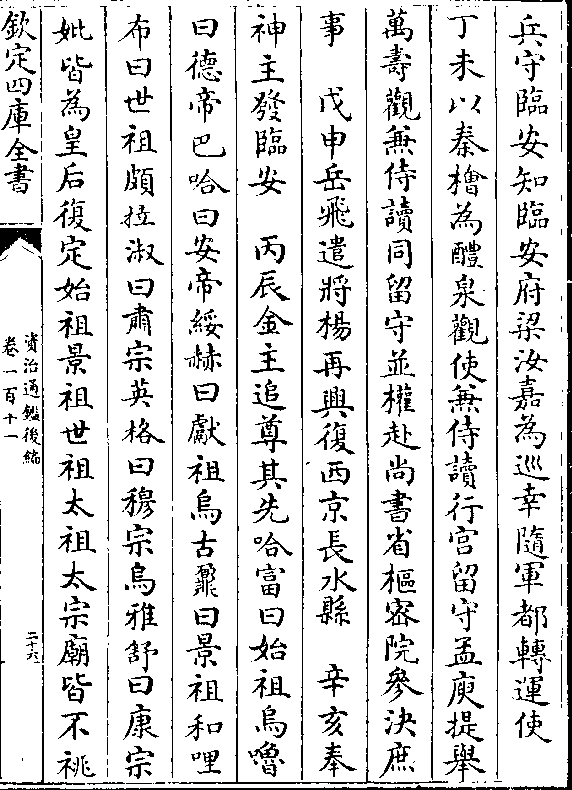 兵守臨安知臨安府梁汝嘉為巡幸隨軍都轉運使
丁未以秦檜為醴泉觀使兼侍讀行宫留守孟庾提舉
萬壽觀兼侍讀同留守並權赴尚書省樞密院參決庶
事　戊申岳飛遣將楊再興復西京長水縣　辛亥奉
神主發臨安　丙辰金主追尊其先哈富曰始祖烏嚕
曰德帝巴哈曰安帝綏赫曰獻祖烏古鼐曰景祖和哩
布曰世祖頗拉淑曰肅宗英格曰穆宗烏雅舒曰康宗
妣皆為皇后復定始祖景祖世祖太祖太宗廟皆不祧
欽定四庫全書
資治通鑑後編
卷一百十一
二十六